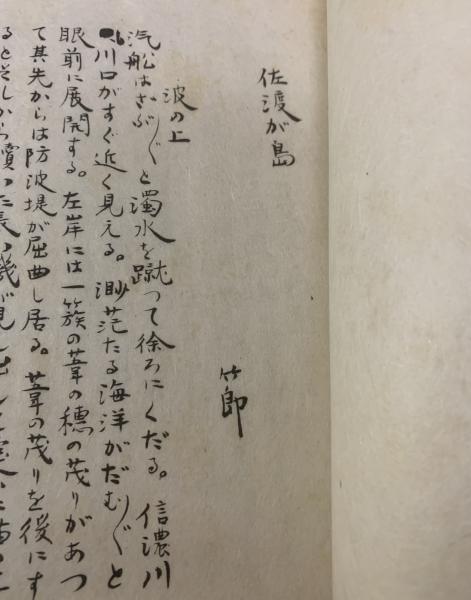 佐渡が島
節
波の上
汽船はざぶ〱と濁水を蹴つて徐ろにくだる。信濃川
の川口がすぐ近く見える。渺茫たる海洋がだむ〱と
眼前に展開する。左岸には一簇の葦の穂の茂りがあつ
て其先からは防波堤が屈曲し居る。葦の茂りを後にす
るとそれから